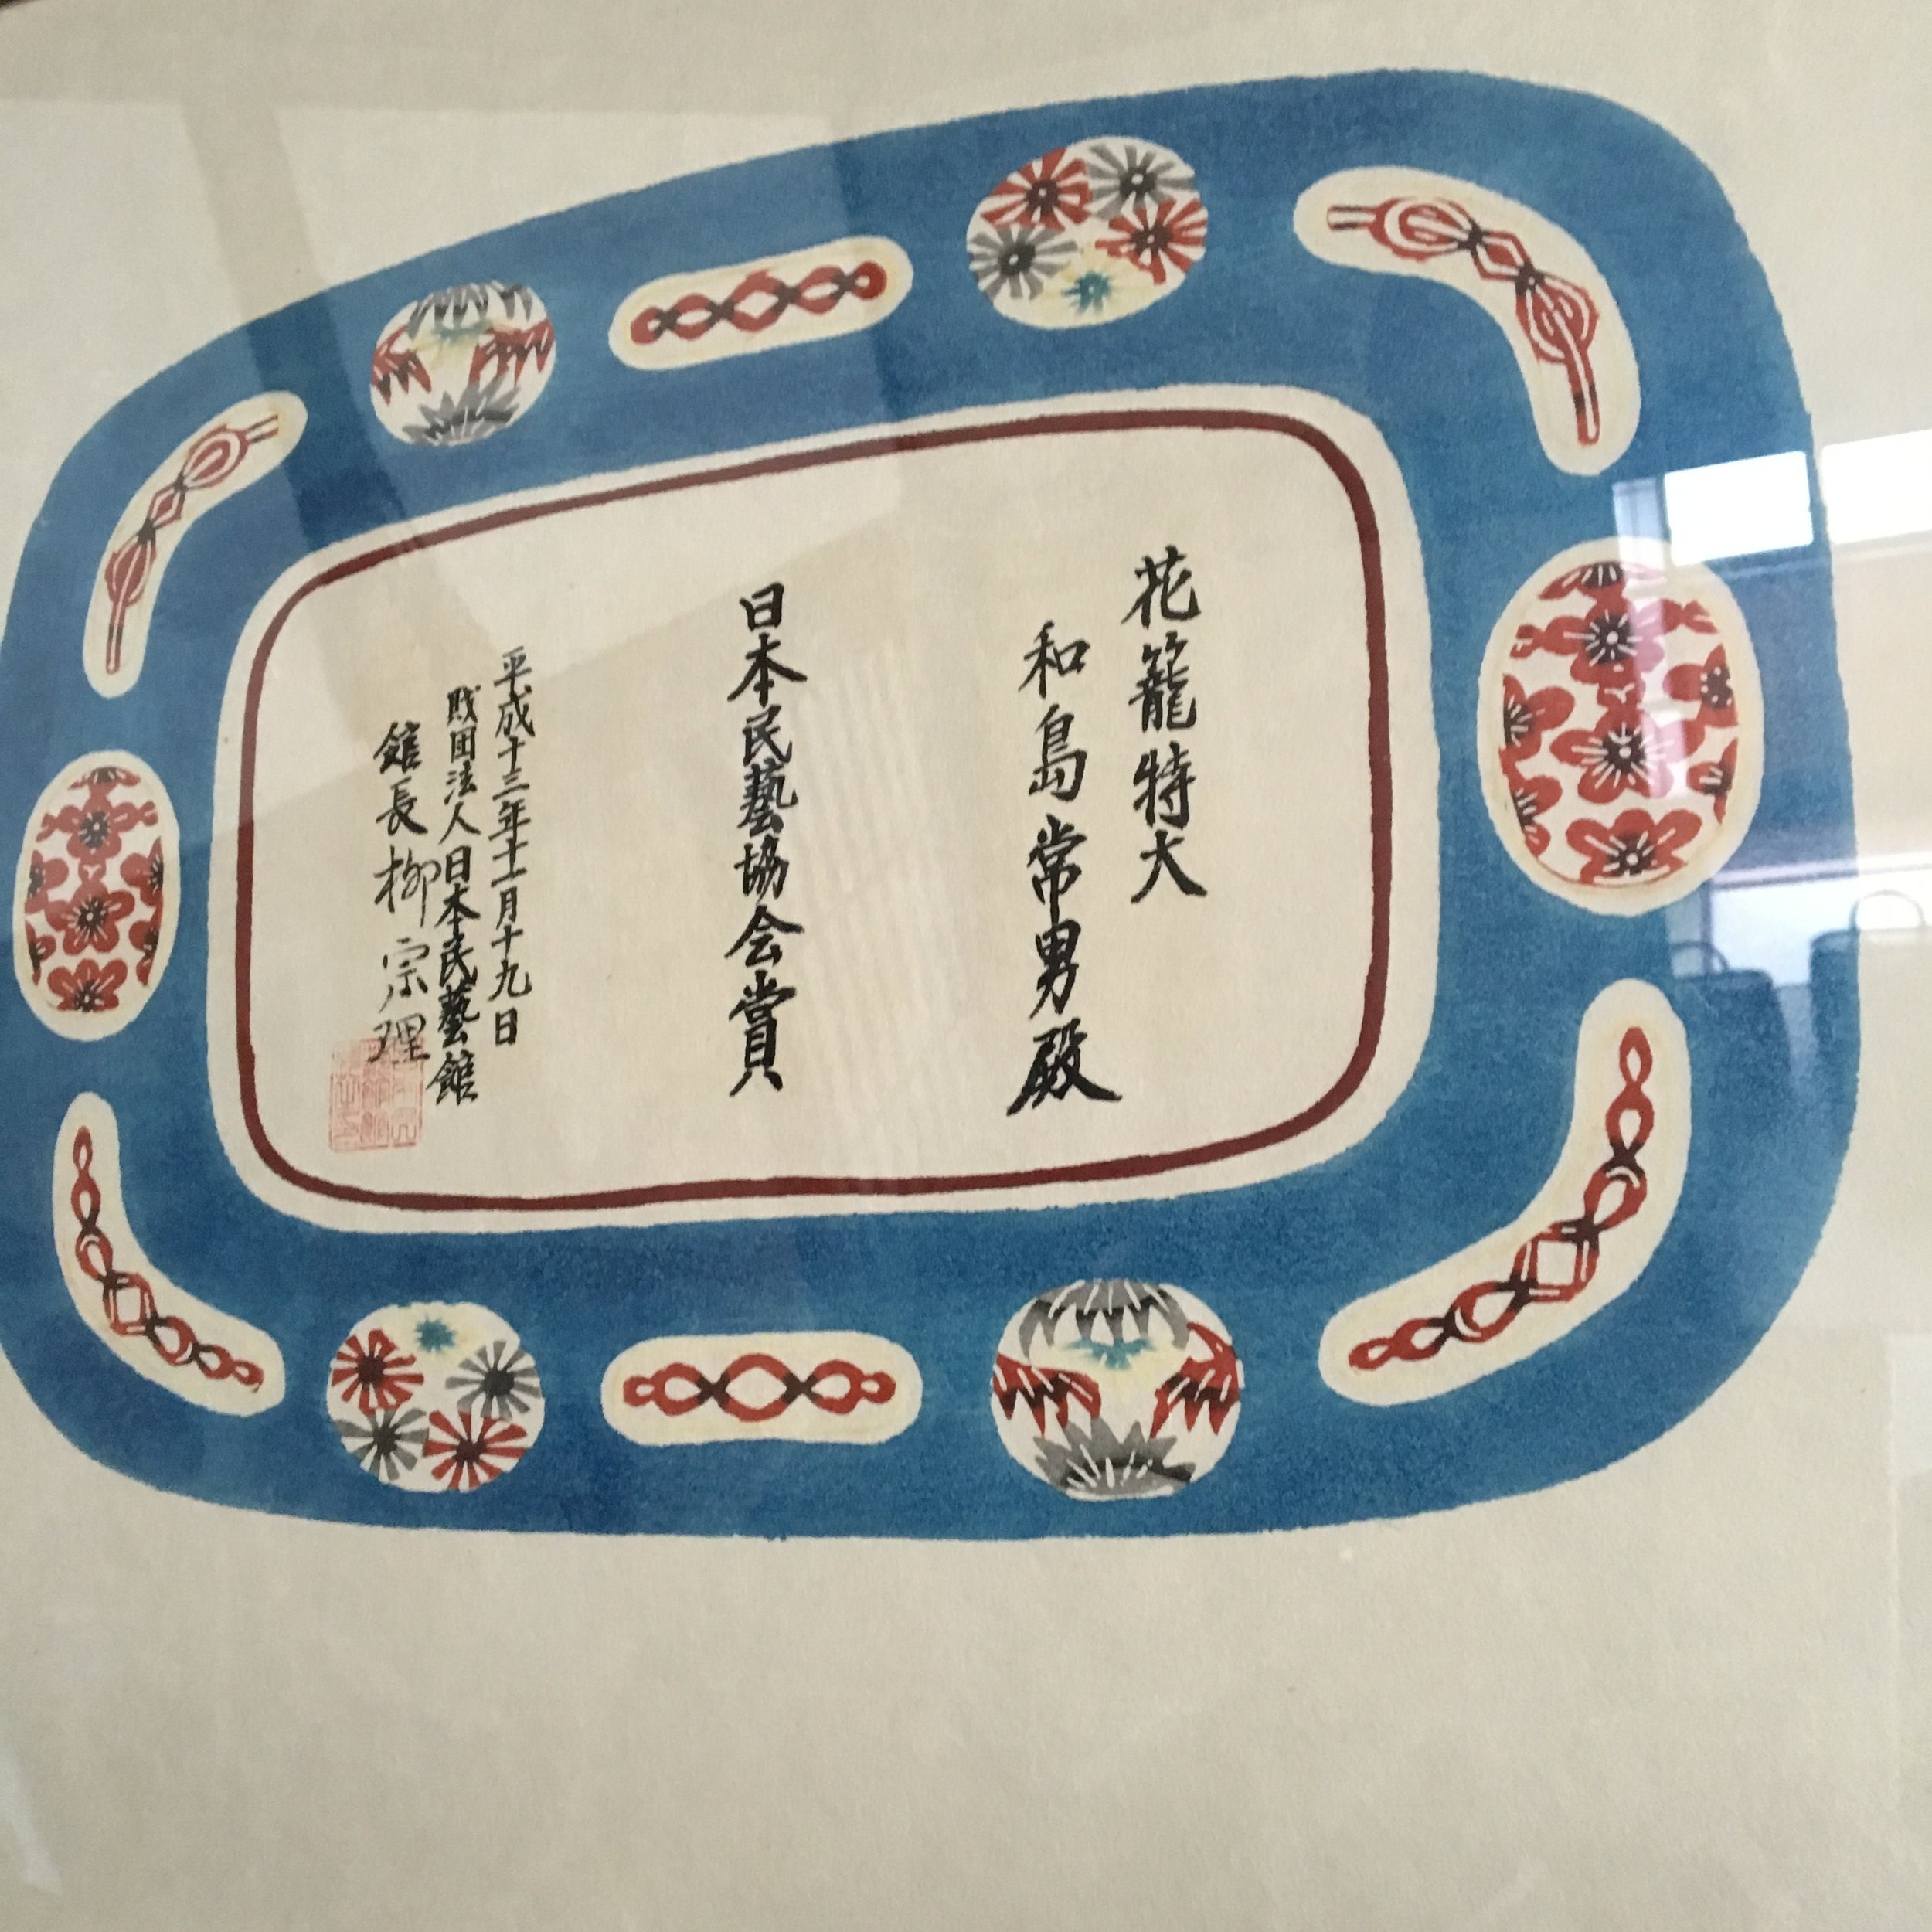 花籠特大
和島常男殿
日本民藝協会賞
平成十三年十二月十九日
財団法人日本民藝館
館長柳宗理